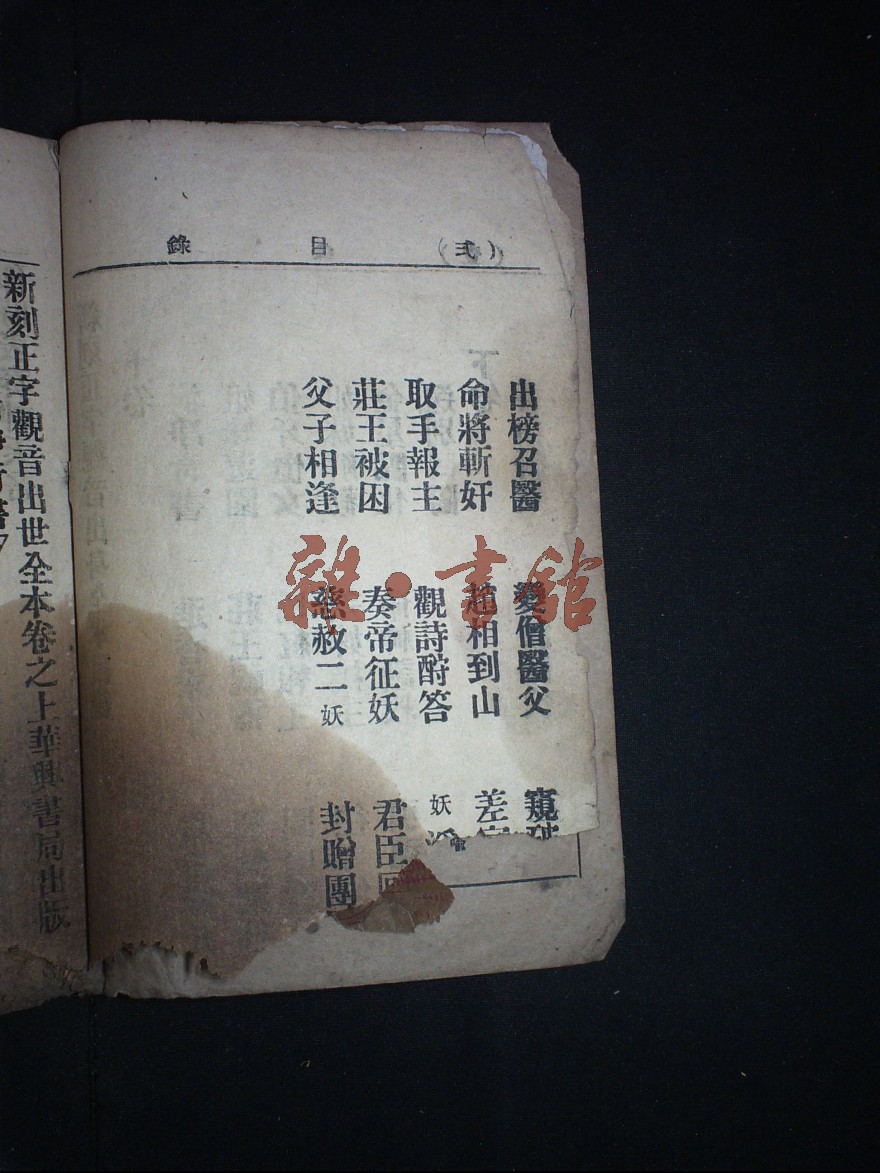 （弍） 目 錄
出榜召醫 變僧醫父 窺
命將斬奸 趙相到山 差
取手報主 觀詩酧答 妖
莊王被困 奏帝征妖 君臣回
父子相逢 慈赦二妖 封贈團
新刻正字觀音出世全本卷之上華興書局出版
雜·書館